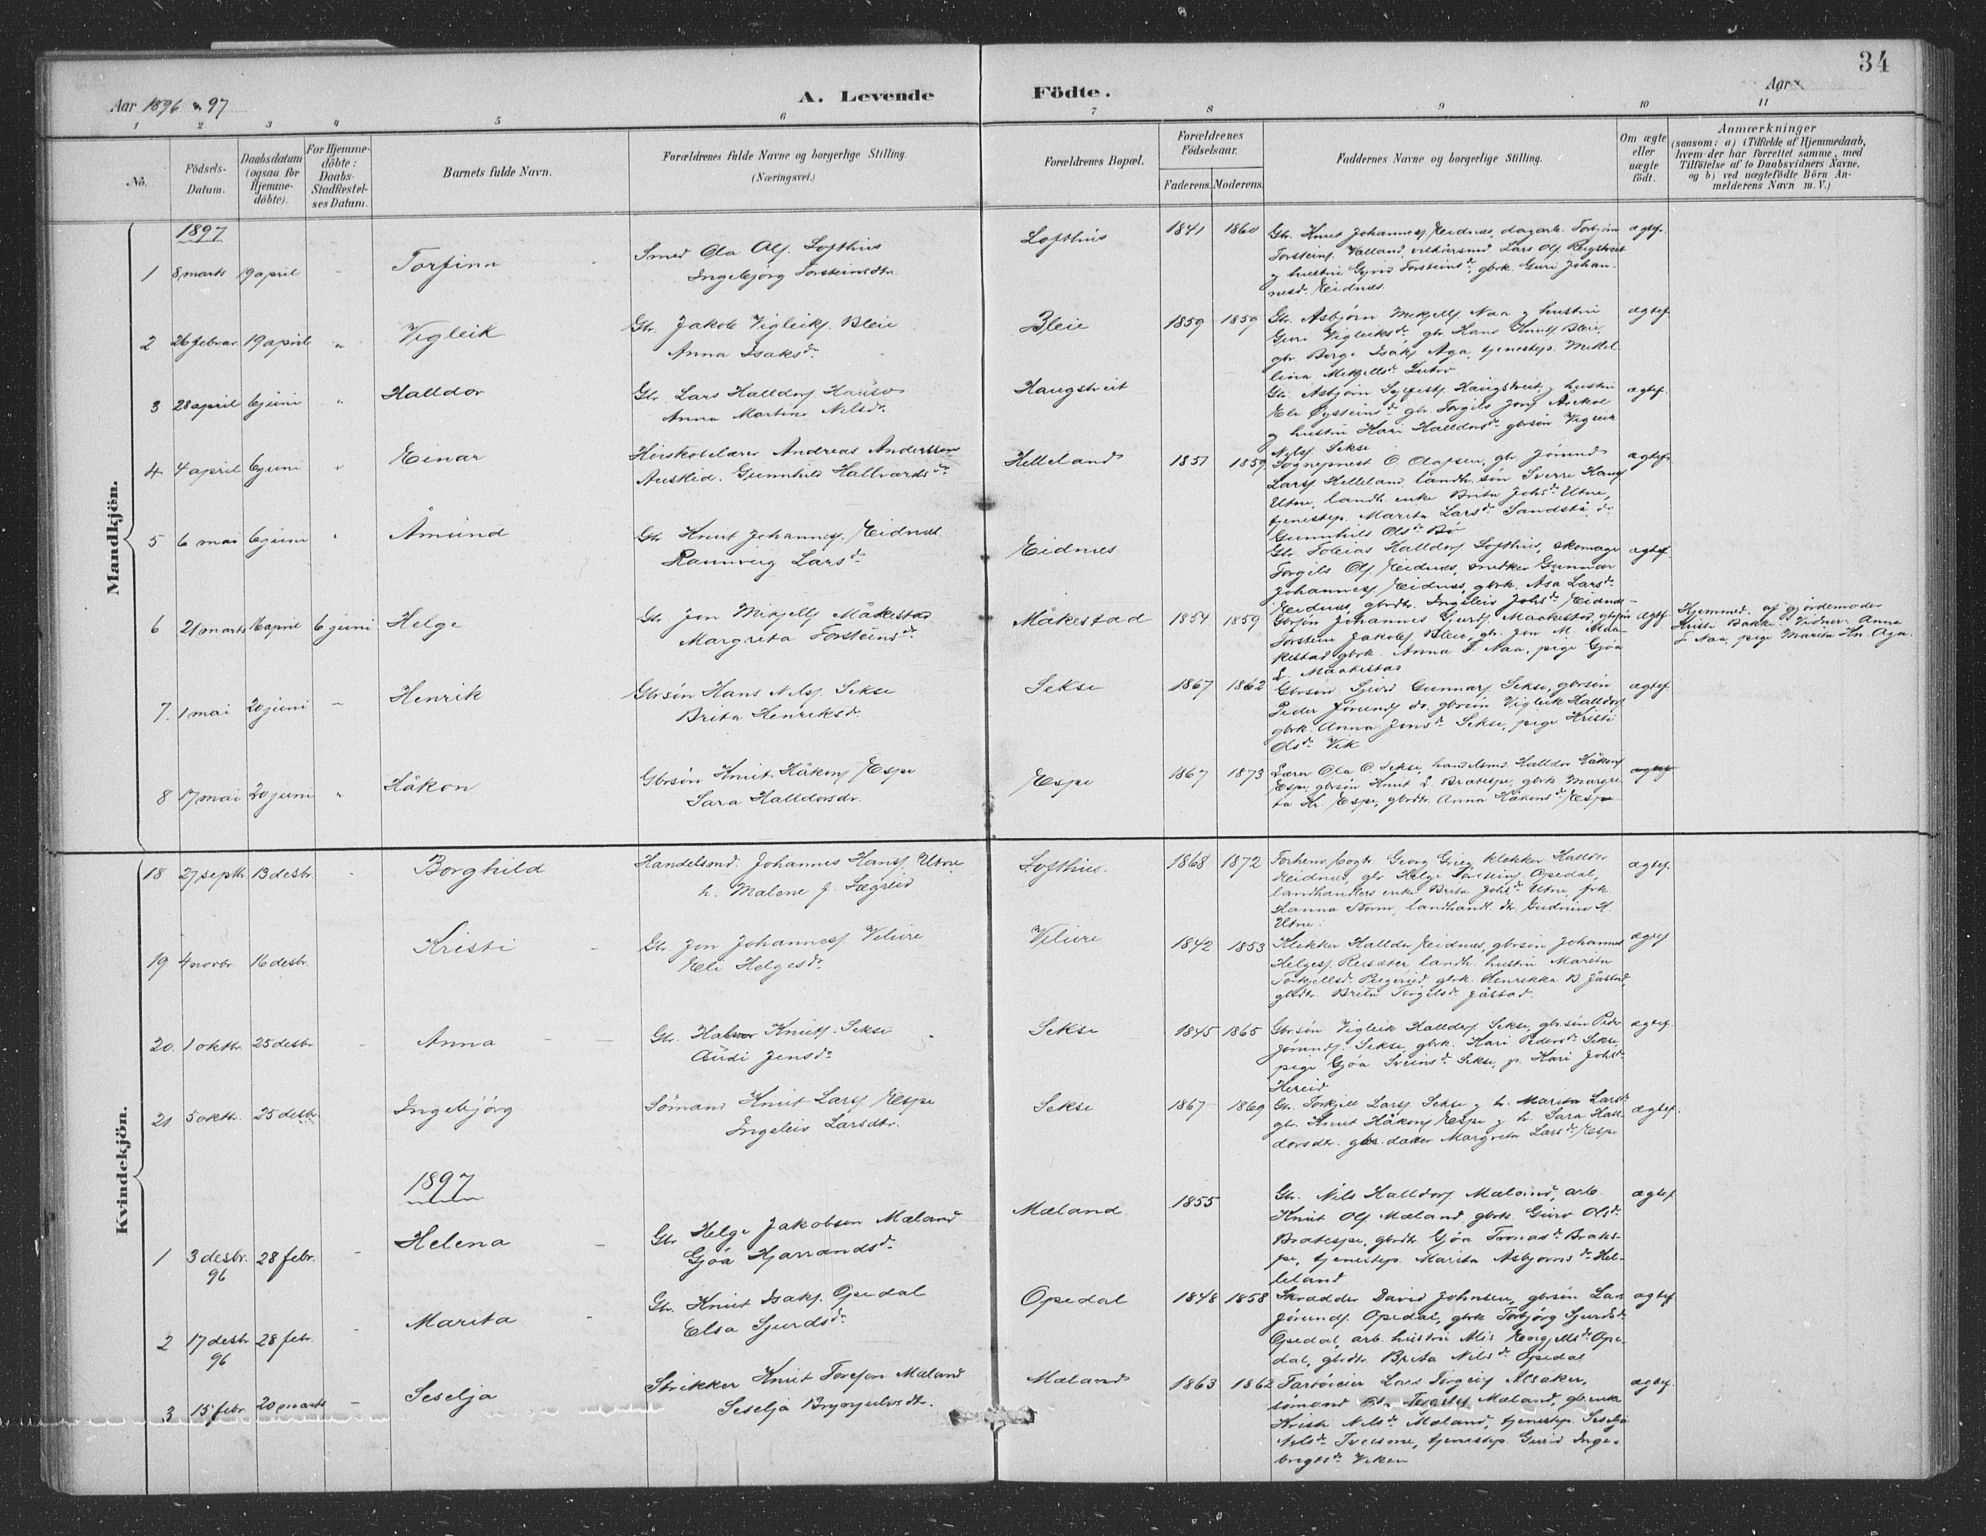 34
Aar 1896 & 97
A. Levende Födte.
Aar
1 2 3 4 5 6 7 8 9 10 11
No.
Födsels-
Datum.
Daabsdatum
(ogsaa for
Hjemme-
döbte).
For Hjemme-
döbte:
Daabs-
Stadfestel-
ses Datum.
Barnets fulde Navn.
Forældrenes fulde Navne og borgerlige Stilling.
(Næringsvei.)
Forældrenes Bopæl.
Forældrenes
Födselsaar.
Faderens. Moderens.
Faddernes Navne og borgerlige Stilling.
Om ægte
eller
uægte
födt.
Anmærkninger
(saasom: a) i Tilfælde af Hjemmedaab,
hvem der har forrettet samme, med
Tilföielse af to Daabsvidners Navne,
og b) ved uægtefödte Börn An-
melderens Navn m. V.)
Mandkjön.
1897
1 8 marts 19 april - Torfinn
Smed Ola Olf. Lofthus
Ingebjörg Torsteinsdtr.
Lofthus 1841 1860
Gbr. Knut Johannesf Eidnes, dagarb. Torbjörn
Torsteinf. Valland, Lars Olf
og hustru Torsteinsdr. gbrk. Guri Johan-
nesdr. Eidnes
ægtef.
2 26 februar 19 april " Vigleik
Gbr. Jakob Vigleiksf. Bleie
Anna Isaksdr.
Bleie 1859 1859
Gbr. Asbjörn Mikjelf Naa og hustru
Guri Vigleiksdr, gbr Hans Knutsf Bleie,
gbr. Börge Isaksf Aga, tjenestep. Mikkel-
lina Mikjelsdr.
ægtef.
3 28 april 6 juni " Halldor
Gbr. Lars Halldorf
Anna Martine Nilsdr.
Haugstveit
Gbr. Asbjörn Haugstveit og hustru
Eli Öysteinsdr. gbr. Torgils Jonf
og hustru Kari Halldorsdr. gbrsön Vigleik
Nilsf. Sekse
ægtef.
4 4 april 6 juni " Einar
Höiskolelærer Andreas Anderssen
Austlid. Gunnhild Hallvardsdr.
Helleland 1851 1859
Sogneprest O. Olafsen, gbr. Jörund
Larsf Helleland, landh. sön Sverre Hansf
Utne, landh. enke Brita Johsdr. Utne,
tjenestep. Marita Larsdr. Sandstå, do.
Gunnhild Olsdr. Bö
ægtef.
5 6 mai 6 juni " Åmund
Gbr Knut Johannesf. Eidnes
Rannveig Larsdr.
Eidnes
Gbr. Tobias Halldorf Lofthus, skomager
Torgils Olf. Eidnes, snedker Gunnar
Johannesf Eidnes, gbrk. Asa Larsdr.
Eidnes, gbrdtr. Ingeleiv Johsdr. Eidnes
ægtef.
6 21 marts 16 april 6 juni Helge
Gbr Jon Mikjelf Måkestad
Margreta Torsteinsdr.
Måkestad 1854 1859
Gbrsön Johannes Gurdf Maakestad, gbrsön
Torstein Jakobsf Bleie, gbr. Jon M. Maa-
kestad, gbrk. Anna T. Naa, pige Gjöa
L. Maakestad
ægtef.
Hjemmed. af gjordemoder
Kristi Bakke. Vidner: Anna
T. Naa, pige Marita Kn. Aga.
7. 1 mai 20 juni - Henrik
Gbrsön Hans Nilsf. Sekse
Brita Henriksdr.
Sekse 1867 1862
Gbrsön Sjurd Gunnarf. Sekse, gbrsön
Peder Jörundf do. gbrsön Vigleik Halldorf,
gbrk. Anna Jensdr. Sekse, pige Kristi
Olsdr. Vik
ægtef.
8 17 mai 20 juni " Håkon
Gbrsön Knut Håkonf Espe
Sara Halldorsdr.
Espe 1867 1873
Lærer Ola O. Sekse, handelsmd. Halldor Håkonf
Espe, gbrsön Knut L. Bratespe, gbrk. Margre-
ta Kr. Espe, gbrdtr. Anna Håkonsdr. Espe
ægtef
Kvindekjön.
18 27 septbr. 13 desbr. - Borghild
Handelsmd. Johannes Hansf Utne
h. Malene f. Sægreid
Lofthus. 1868 1872
Georg Grieg, klokker Halldor
Eidnes, gbr Helge Torsteinf Opedal,
landhandlers enke Brita Johsdr. Utne, frk.
Hanna Storm, landhandl. dtr. Gudrun H.
Utne.
ægtef.
19 4 novbr. 16 desbr. Kristi
Gbr. Jon Johannesf Velure
Eli Helgesdr.
Velure 1842 1853
Klokker Halldor Eidnes, gbrsön Johannes
Helgesf. Reisæter, landh. hustru Marita
Torkjellsdr. gbrk. Henrikka B. Jåstad
gbrdtr. Brita Torgilsdr. Jåstad.
ægtef
20. 1 oktbr. 25 desbr Anna
Gbr. Knutf. Sekse
Jensdr.
Sekse 1845 1865
Gbrsön Vigleik Halldorf Sekse, gbrsön Peder
Jörundf. Sekse, gbrk. Kari Pedersdr. Sekse,
pige Gjöa Sveinsdr. Sekse, p. Kari Johsdr.
Hereid
ægtef.
21 5 oktbr. 25 desbr. Ingebjörg
Sömand Knut Larsf Espe
Ingeleiv Larsdtr.
Sekse 1867 1869
Gbr. Torkjell Larsf Sekse og h. Marita Larsdr.
gbr. Knut Håkonf Espe og h. Sara Hall-
dorsdtr. gbr. datter Margreta Larsdr. Espe
ægtef.
1897
1 3 desbr. 96 28 febr. - Helena
Gbr. Helge Jakobsen Mæland
Gjöa Hjarrandsdr.
Mæland 1855
Gbr. Nils Halldorf Mæland, arb.
Knut Olf Mæland, gbrk. Guro Olsdr.
Bratespe, gbrdtr Gjöa Tronasdr. Brates-
pe, tjenestep. Marita Asbjörnsdr. Hel-
leland
ægtef.
2 17 desbr 96 28 febr. - Marita
Gbr. Knut Isaksf. Opedal
Elsa Sjurdsdr.
Opedal 1848 1858
Skrædder David Johnsen, gbrsön Lars
Jörundf. Opedal, gbrk Torbjörg Sjurdsdr.
Opedal, arb. hustru Ope-
dal, gbrdtr. Brita Nilsdr. Opedal
ægtef
3 15 febr. 20 marts - Seselja
Knut Mæland
Seselja
Mæland 1863 1862
Lars Alsaker,
sömand Mæland, gbrenke
Kristi Nilsdr. Mæland, tjenestep. Seselja
Nilsdr. Tveisme, tjenestep. Gurid Inge-
brigtsdr. Viken
ægtef.